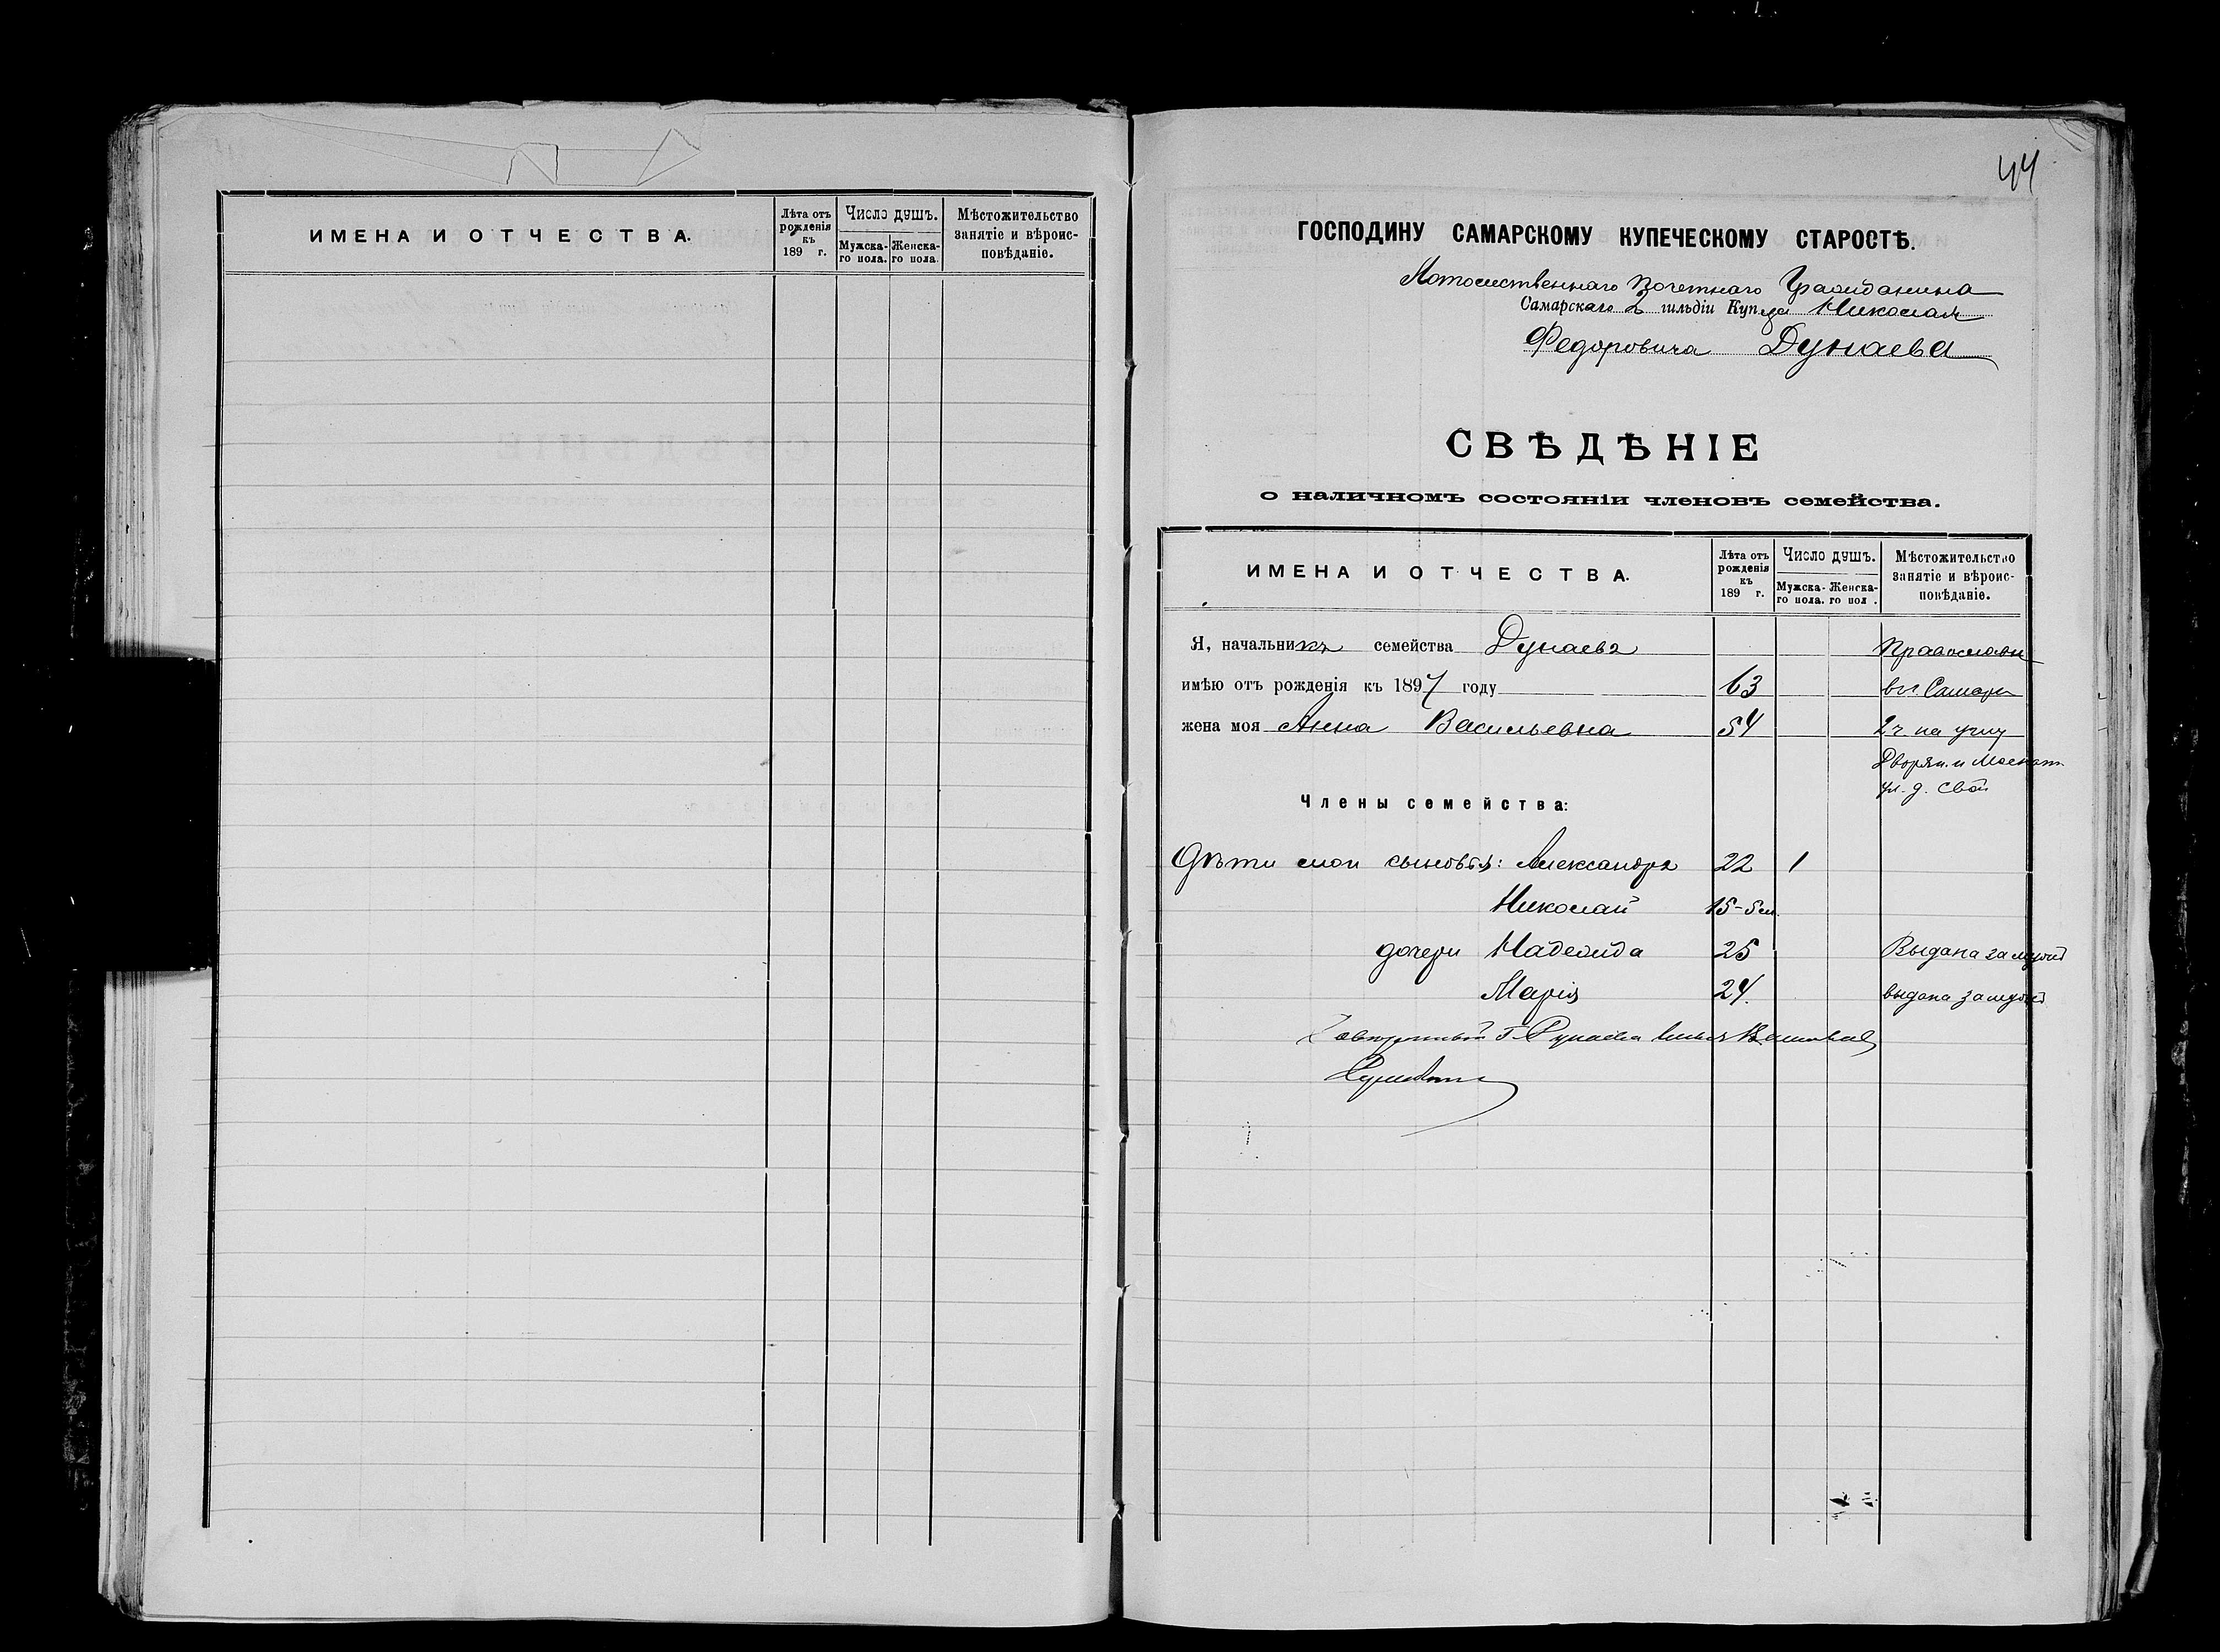 ИМЕНА И ОТЧЕСТВА.
Лѣта отъ рожденія къ 189 г.
Число душъ.
Мужска-го пола.
Женска-го пола.
Мѣстожительство занятіе и вѣроис-повѣданіе.
44
ГОСПОДИНУ САМАРСКОМУ КУПЕЧЕСКОМУ СТАРОСТѢ.
Потомственнаго Почетнаго Гражданина
Самарскаго 2 гильдіи Купца Николая
Федоровича Дунаева
СВѢДѢНІЕ
о наличномъ состояніи членовъ семейства.
ИМЕНА И ОТЧЕСТВА.
Лѣта отъ рожденія къ 189 г.
Число душъ.
Мужска-го пола.
Женска-го пол .
Мѣстожительство занятіе и вѣроис-повѣданіе.
Я, начальникъ семейства Дунаевъ Православн
имѣю отъ рожденія къ 1897 году 63 въ г. Самарѣ
жена моя Анна Васильевна 54 2 ч. на углу
Дворян. и Москат.
ул. д. свой
Члены семейства:
Дѣти мои сыновья: Александръ 22 1
Николай 15-5 м.
дочери Надежда 25 Выдана замужъ
Марія 24. выдана замужъ
Довѣренный Г. Дунаева